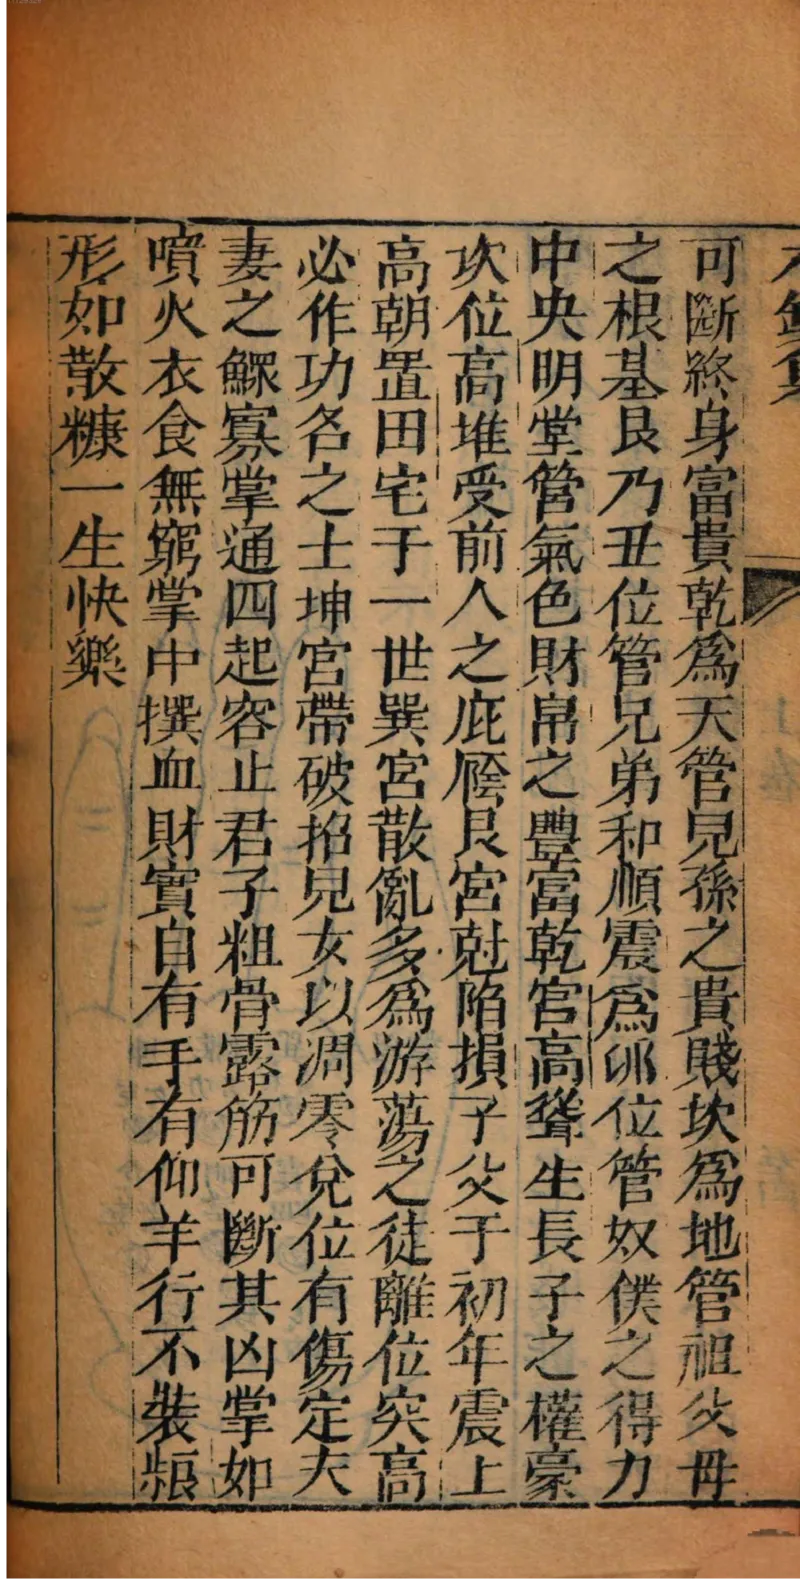 可斷終身富貴乾爲天管兒孫之貴賤坎爲地管祖父母
之根基艮乃丑位管兄弟和順震爲卯位管奴僕之得力
中央明堂管氣色財帛之豐富乾宮高聳生長子之權豪
坎位高堆受前人之庇廕艮宮尅陷損子父于初年震上
高朝置田宅于一世巽宮散亂多爲游蕩之徒離位突高
必作功名之士坤宮帶破招兒女以凋零兌位有傷定夫
妻之鰥寡掌通四起容止君子粗骨露筋可斷其凶掌如
噴火衣食無窮掌中撰血財實自有手有仰羊行不裝粮
形如散糠一生快樂